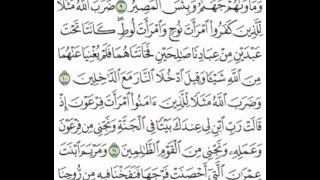 وَمَأْوَىٰهُمْ جَهَنَّمُ وَبِئْسَ ٱلْمَصِيرُ ٩ ضَرَبَ ٱللَّهُ مَثَلًا
لِّلَّذِينَ كَفَرُوا۟ ٱمْرَأَتَ نُوحٍ وَٱمْرَأَتَ لُوطٍ ۖ كَانَتَا تَحْتَ
عَبْدَيْنِ مِنْ عِبَادِنَا صَـٰلِحَيْنِ فَخَانَتَاهُمَا فَلَمْ يُغْنِيَا عَنْهُمَا
مِنَ ٱللَّهِ شَيْـًٔا وَقِيلَ ٱدْخُلَا ٱلنَّارَ مَعَ ٱلدَّٰخِلِينَ ١٠
وَضَرَبَ ٱللَّهُ مَثَلًا لِّلَّذِينَ ءَامَنُوا۟ ٱمْرَأَتَ فِرْعَوْنَ إِذْ
قَالَتْ رَبِّ ٱبْنِ لِى عِندَكَ بَيْتًا فِى ٱلْجَنَّةِ وَنَجِّنِى مِن فِرْعَوْنَ
وَعَمَلِهِۦ وَنَجِّنِى مِنَ ٱلْقَوْمِ ٱلظَّـٰلِمِينَ ١١ وَمَرْيَمَ ٱبْنَتَ
عِمْرَٰنَ ٱلَّتِىٓ أَحْصَنَتْ فَرْجَهَا فَنَفَخْنَا فِيهِ مِن رُّوحِنَا